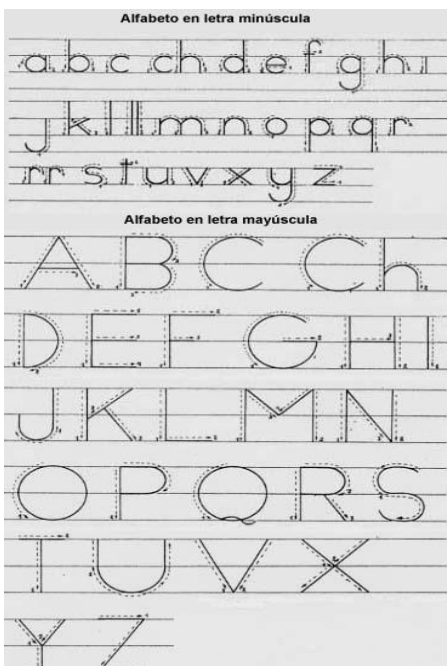 Alfabeto en letra minúscula
a b c ch d e f g h i
j k l ll m n o p q r
rr s t u v x y z
Alfabeto en letra mayúscula
A B C Ch
D E F G H I
J K L M N
O P Q R S
T U V X
Y Z